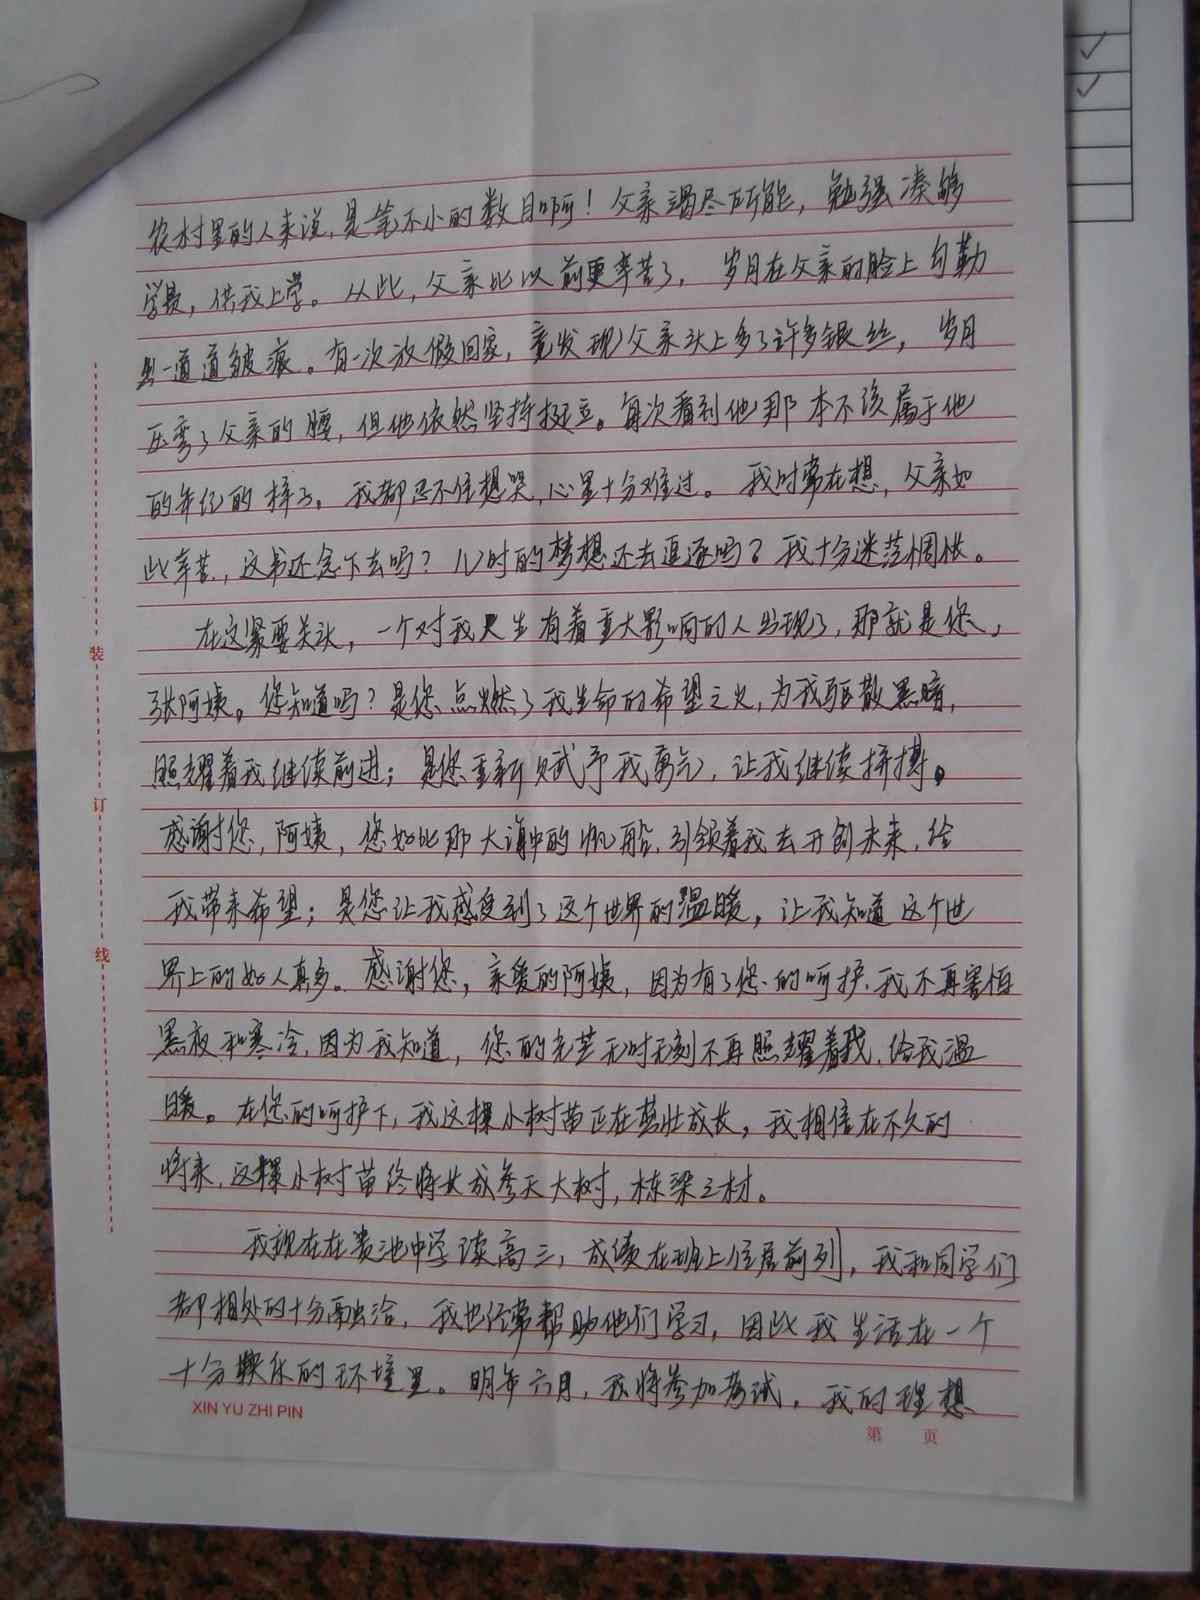 农村里的人来说，是笔不小的数目啊！父亲竭尽所能，勉强凑够
学费，供我上学。从此，父亲比以前更辛苦了，岁月在父亲的脸上勾勒
出一道道皱痕。有一次放假回家，竟发现父亲头上多了许多银丝，岁月
压弯了父亲的腰，但他依然坚持挺立。每次看到他那本不该属于他
的年纪的样子。我都忍不住想哭，心里十分难过。我时常在想，父亲如
此辛苦，这书还念下去吗？儿时的梦想还去追逐吗？我十分迷茫惆怅。
在这紧要关头，一个对我人生有着重大影响的人出现了，那就是您，
张阿姨。您知道吗？是您点燃了我生命的希望之火，为我驱散黑暗，
照耀着我继续前进；是您重新赋予我勇气，让我继续拼搏。
感谢您，阿姨，您如比那大海中的帆船，引领着我去开创未来，给
我带来希望；是您让我感受到了这个世界的温暖，让我知道这个世
界上的好人真多。感谢您，亲爱的阿姨，因为有了您的呵护，我不再害怕
黑夜和寒冷，因为我知道，您的光芒无时无刻不再照耀着我，给我温
暖。在您的呵护下，我这棵小树苗正在茁壮成长，我相信在不久的
将来，这棵小树苗终将长成参天大树，栋梁之材。
我现在在贵池中学读高三，成绩在班上位居前列，我和同学们
都相处的十分融洽，我也经常帮助他们学习，因此我生活在一个
十分快乐的环境里。明年六月，我将参加考试，我的理想
XIN YU ZHI PIN
第 页
装
订
线